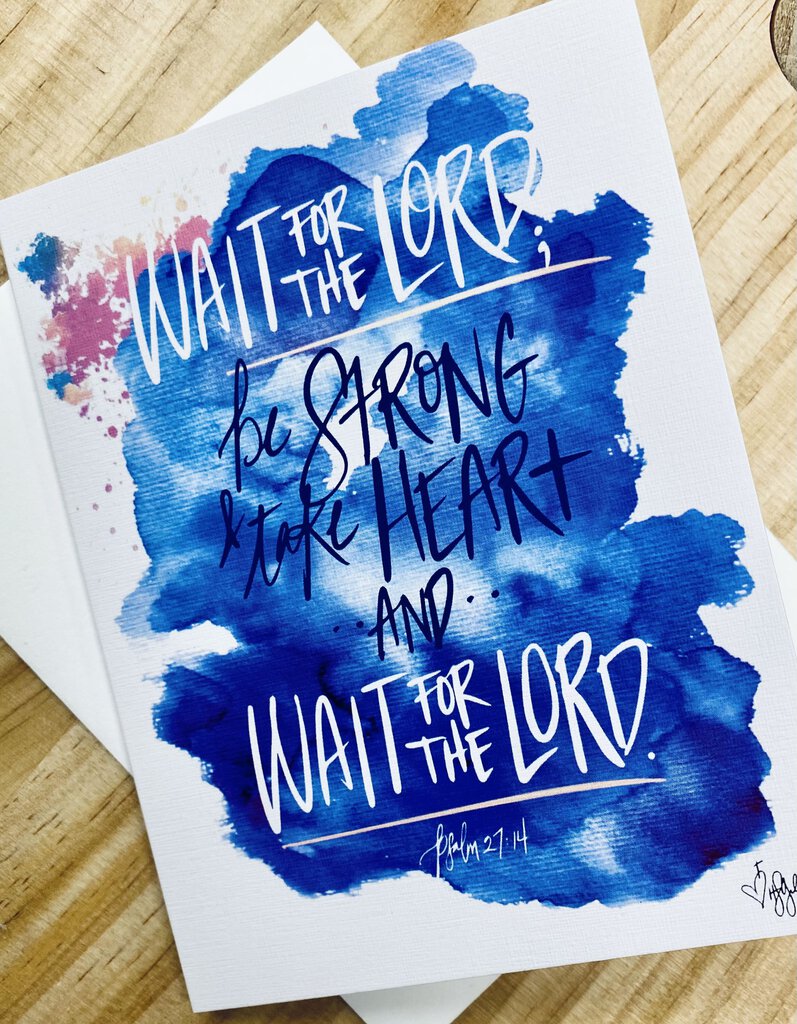 WAIT FOR THE LORD;
be STRONG
& take HEART
..AND..
WAIT FOR THE LORD.
Psalm 27:14